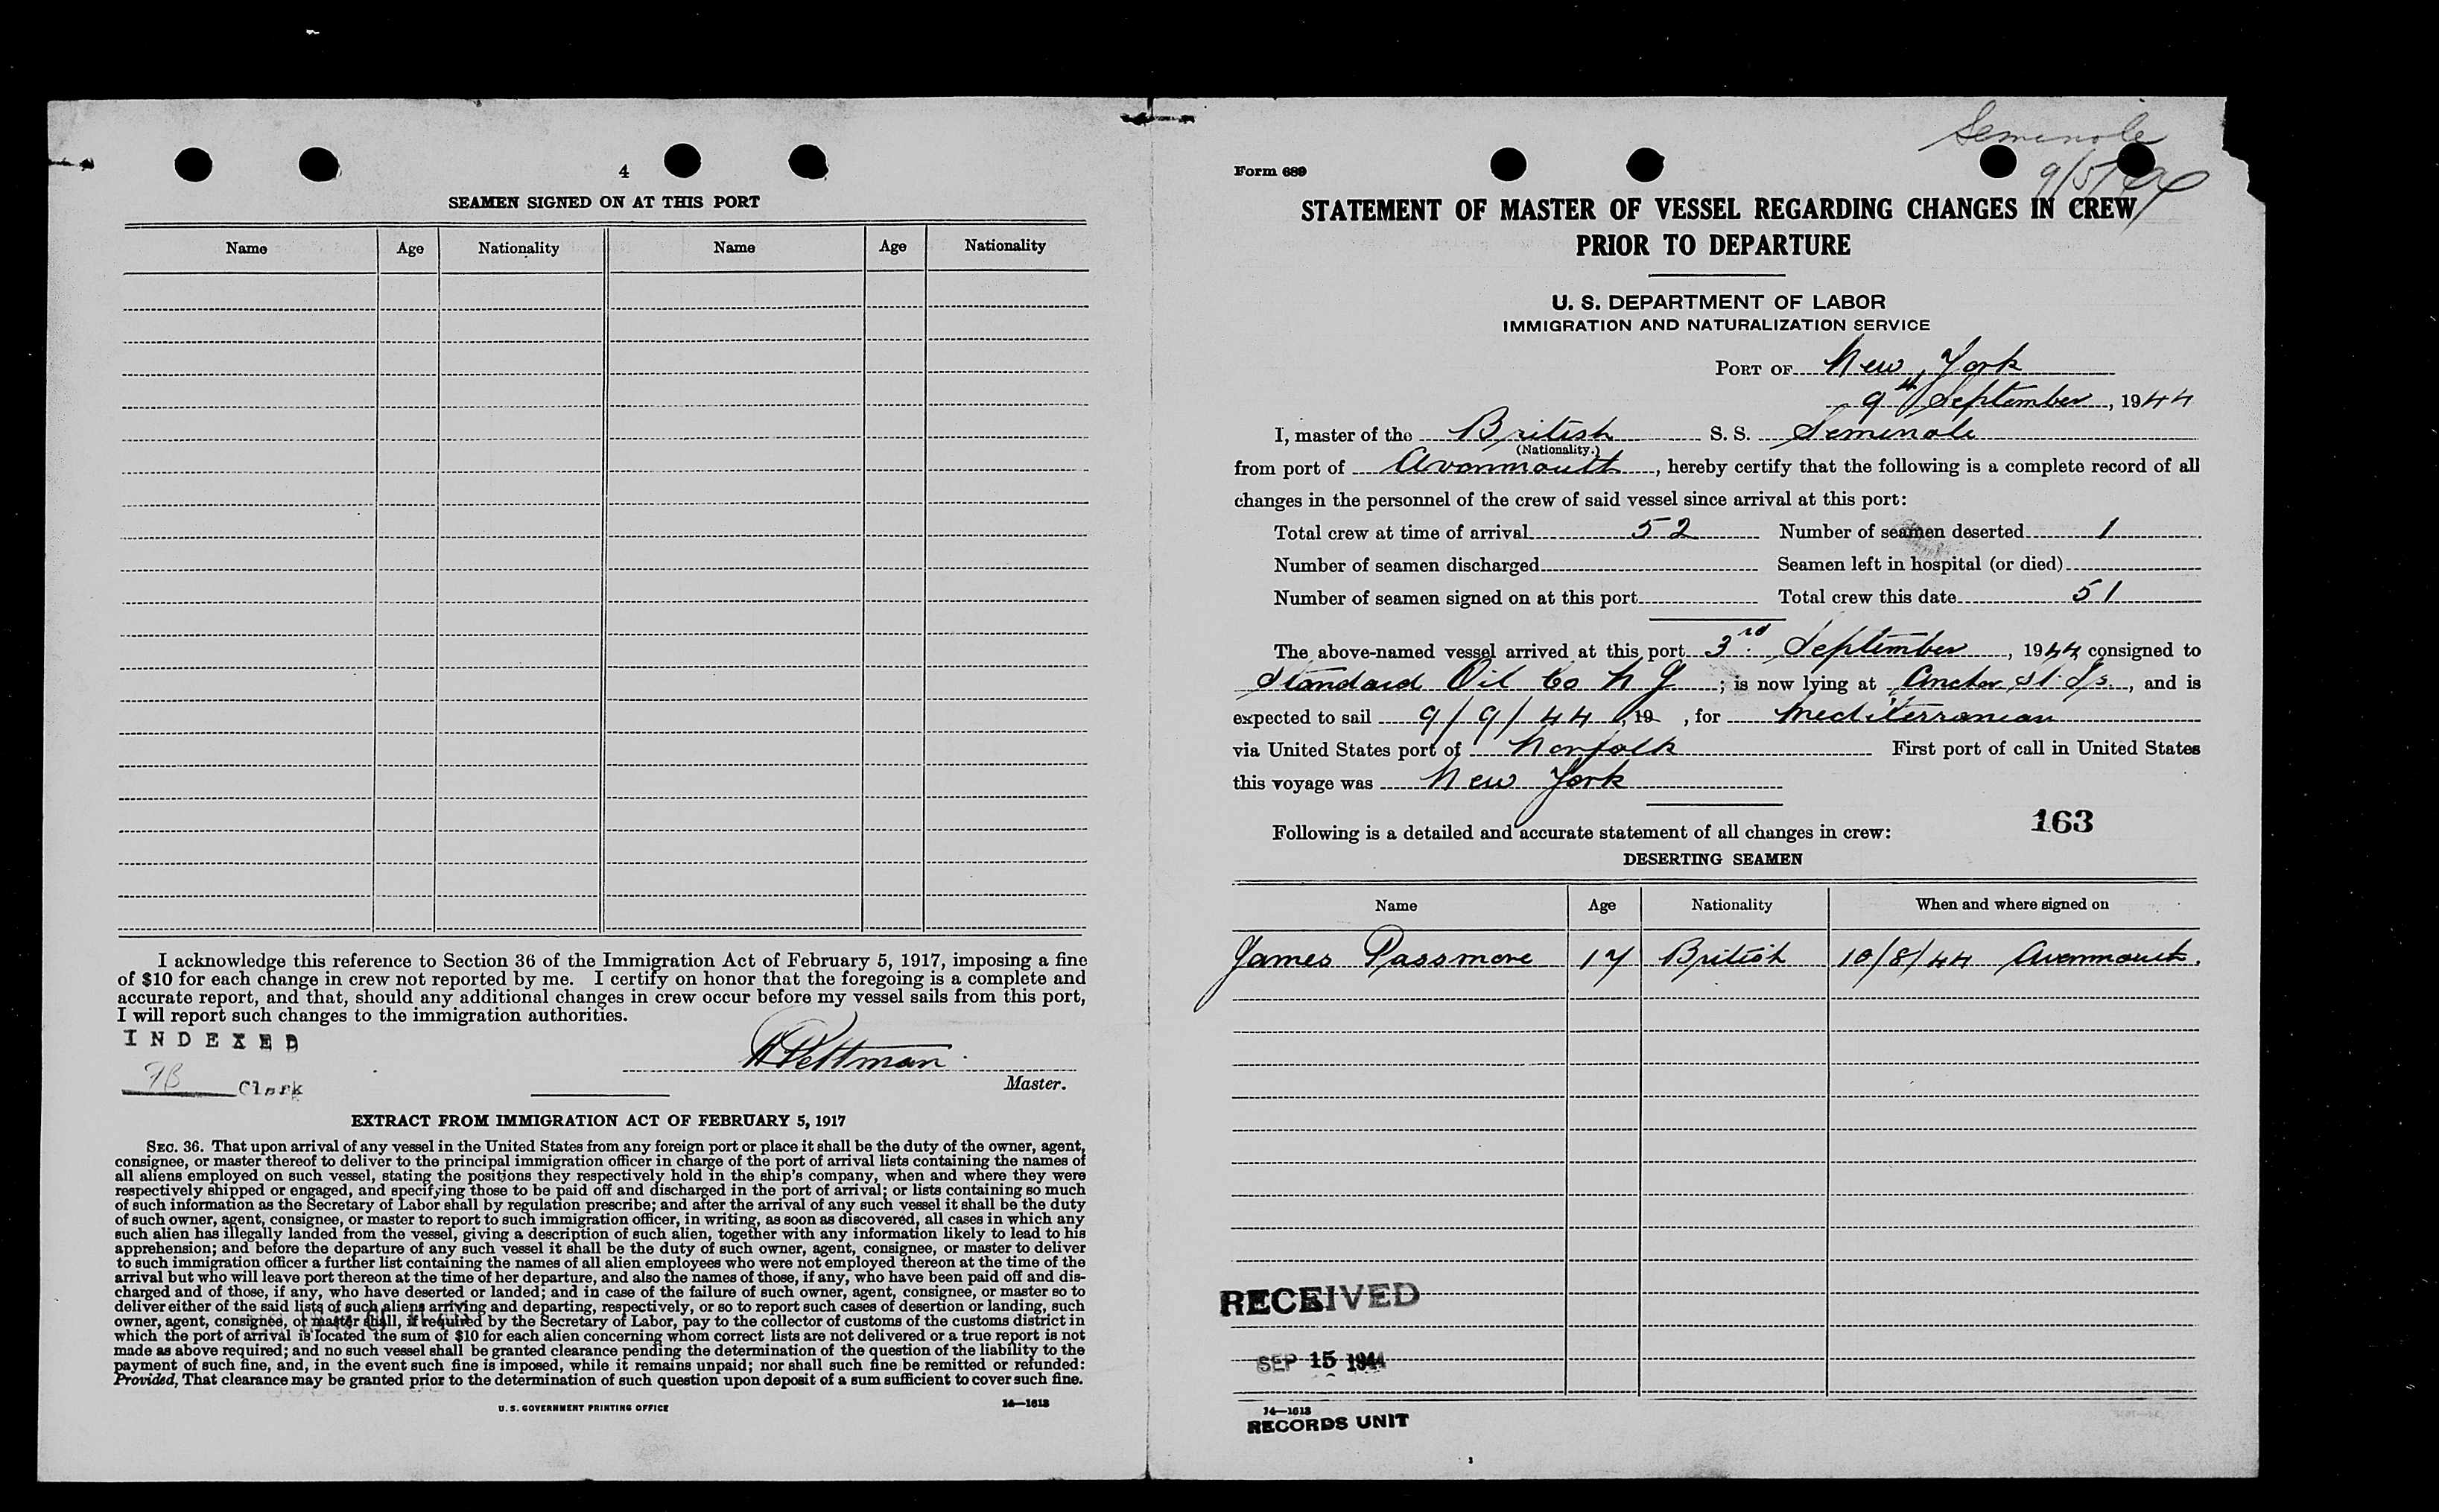 4
SEAMEN SIGNED ON AT THIS PORT
Name Age Nationality Name Age Nationality
I acknowledge this reference to Section 36 of the Immigration Act of February 5, 1917, imposing a fine
of $10 for each change in crew not reported by me. I certify on honor that the foregoing is a complete and
accurate report, and that, should any additional changes in crew occur before my vessel sails from this port,
I will report such changes to the immigration authorities.
INDEXED
Clerk
Pettman
Master.
EXTRACT FROM IMMIGRATION ACT OF FEBRUARY 5, 1917
SEC. 36. That upon arrival of any vessel in the United States from any foreign port or place it shall be the duty of the owner, agent,
consignee, or master thereof to deliver to the principal immigration officer in charge of the port of arrival lists containing the names of
all aliens employed on such vessel, stating the positions they respectively hold in the ship's company, when and where they were
respectively shipped or engaged, and specifying those to be paid off and discharged in the port of arrival; or lists containing so much
of such information as the Secretary of Labor shall by regulation prescribe; and after the arrival of any such vessel it shall be the duty
of such owner, agent, consignee, or master to report to such immigration officer, in writing, as soon as discovered, all cases in which any
such alien has illegally landed from the vessel, giving a description of such alien, together with any information likely to lead to his
apprehension; and before the departure of any such vessel it shall be the duty of such owner, agent, consignee, or master to deliver
to such immigration officer a further list containing the names of all alien employees who were not employed thereon at the time of the
arrival but who will leave port thereon at the time of her departure, and also the names of those, if any, who have been paid off and dis-
charged and of those, if any, who have deserted or landed; and in case of the failure of such owner, agent, consignee, or master so to
deliver either of the said lists of such aliens arriving and departing, respectively, or so to report such cases of desertion or landing, such
owner, agent, consignee, or master shall, if required by the Secretary of Labor, pay to the collector of customs of the customs district in
which the port of arrival is located the sum of $10 for each alien concerning whom correct lists are not delivered or a true report is not
made as above required; and no such vessel shall be granted clearance pending the determination of the question of the liability to the
payment of such fine, and, in the event such fine is imposed, while it remains unpaid; nor shall such fine be remitted or refunded:
Provided, That clearance may be granted prior to the determination of such question upon deposit of a sum sufficient to cover such fine.
U. S. GOVERNMENT PRINTING OFFICE 14—1613
Seminole
Form 689
STATEMENT OF MASTER OF VESSEL REGARDING CHANGES IN CREW
PRIOR TO DEPARTURE
U. S. DEPARTMENT OF LABOR
IMMIGRATION AND NATURALIZATION SERVICE
PORT OF New York
9th September, 1944
I, master of the British S. S. Seminole
(Nationality.)
from port of Avonmouth, hereby certify that the following is a complete record of all
changes in the personnel of the crew of said vessel since arrival at this port:
Total crew at time of arrival 52 Number of seamen deserted 1
Number of seamen discharged Seamen left in hospital (or died)
Number of seamen signed on at this port Total crew this date 51
The above-named vessel arrived at this port 3rd September, 1944 consigned to
Standard Oil Co N J; is now lying at Anchor St. Is., and is
expected to sail 9/9/44, 19 , for Mediterranean
via United States port of Norfolk First port of call in United States
this voyage was New York
163
Following is a detailed and accurate statement of all changes in crew:
DESERTING SEAMEN
Name Age Nationality When and where signed on
James Passmore 17 British 10/8/44 Avonmouth.
RECEIVED
SEP 15 1944
14—1613
RECORDS UNIT